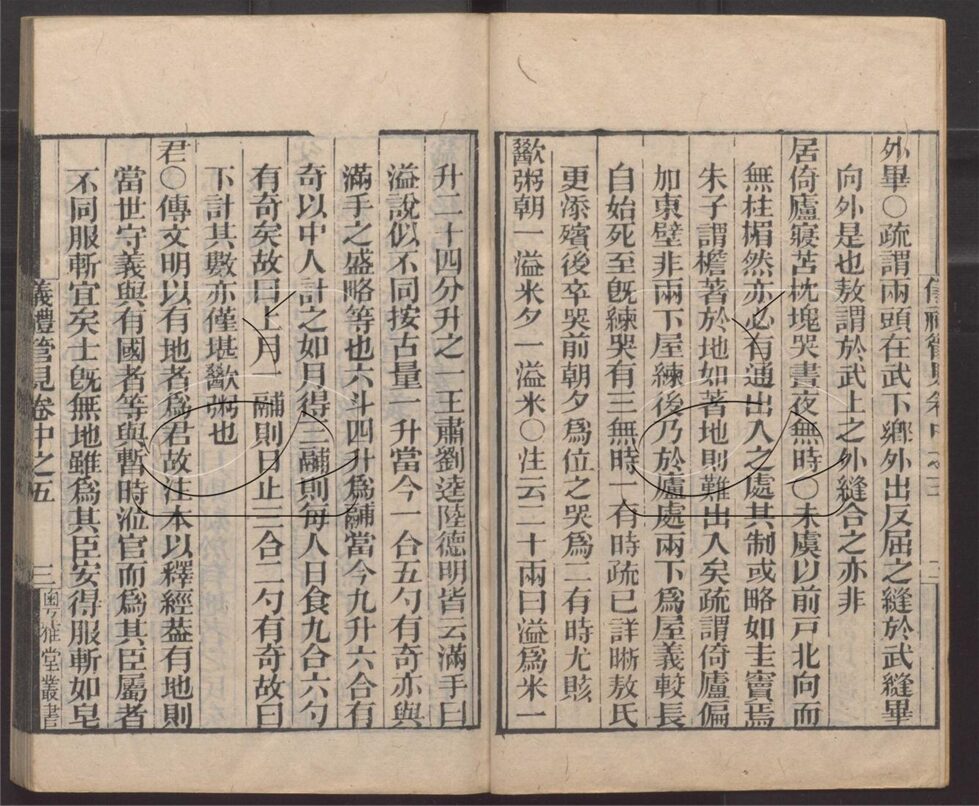 外畢○疏謂兩頭在武下鄉外出反屈之縫於武縫畢
向外是也敖謂於武上之外縫合之亦非
居倚廬寢苫枕塊哭晝夜無時○未虞以前戸北向而
無柱楣然亦必有通出入之處其制或略如圭竇焉
朱子謂檐著於地如著地則難出入矣疏謂倚廬偏
加東壁非兩下屋練後乃於廬處兩下為屋義較長
自始死至旣練哭有三無時一有時疏已詳晰敖氏
更添殯後卒哭前朝夕為位之哭為二有時尤賅
歠粥朝一溢米夕一溢米○注云二十兩曰溢為米一
升二十四分升之一王肅劉逵陸德明皆云滿手曰
溢說似不同按古量一升當今一合五勺有奇亦與
滿手之盛略等也六斗四升為鬴當今九升六合有
奇以中人計之如月得三鬴則每人日食九合六勺
有奇矣故曰上月一鬴則日止三合二勺有奇故曰
下計其數亦僅堪歠粥也
君○傳文明以有地者為君故注本以釋經葢有地則
當世守義與有國者等與暫時涖官而為其臣屬者
不同服斬宜矣士旣無地雖為其臣安得服斬如皂
義禮管見卷中之五
三
粵雅堂叢書